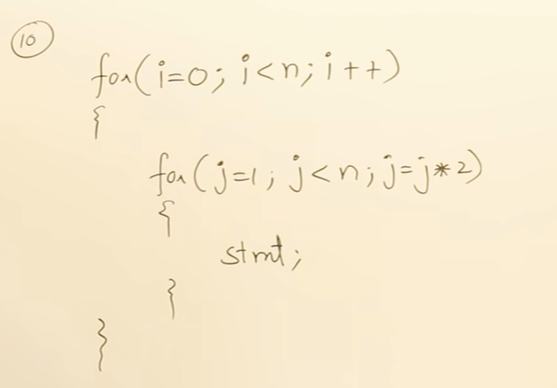 10
for(i=0; i<n; i++)
{
for(j=1; j<n; j=j*2)
{
stmt;
}
}